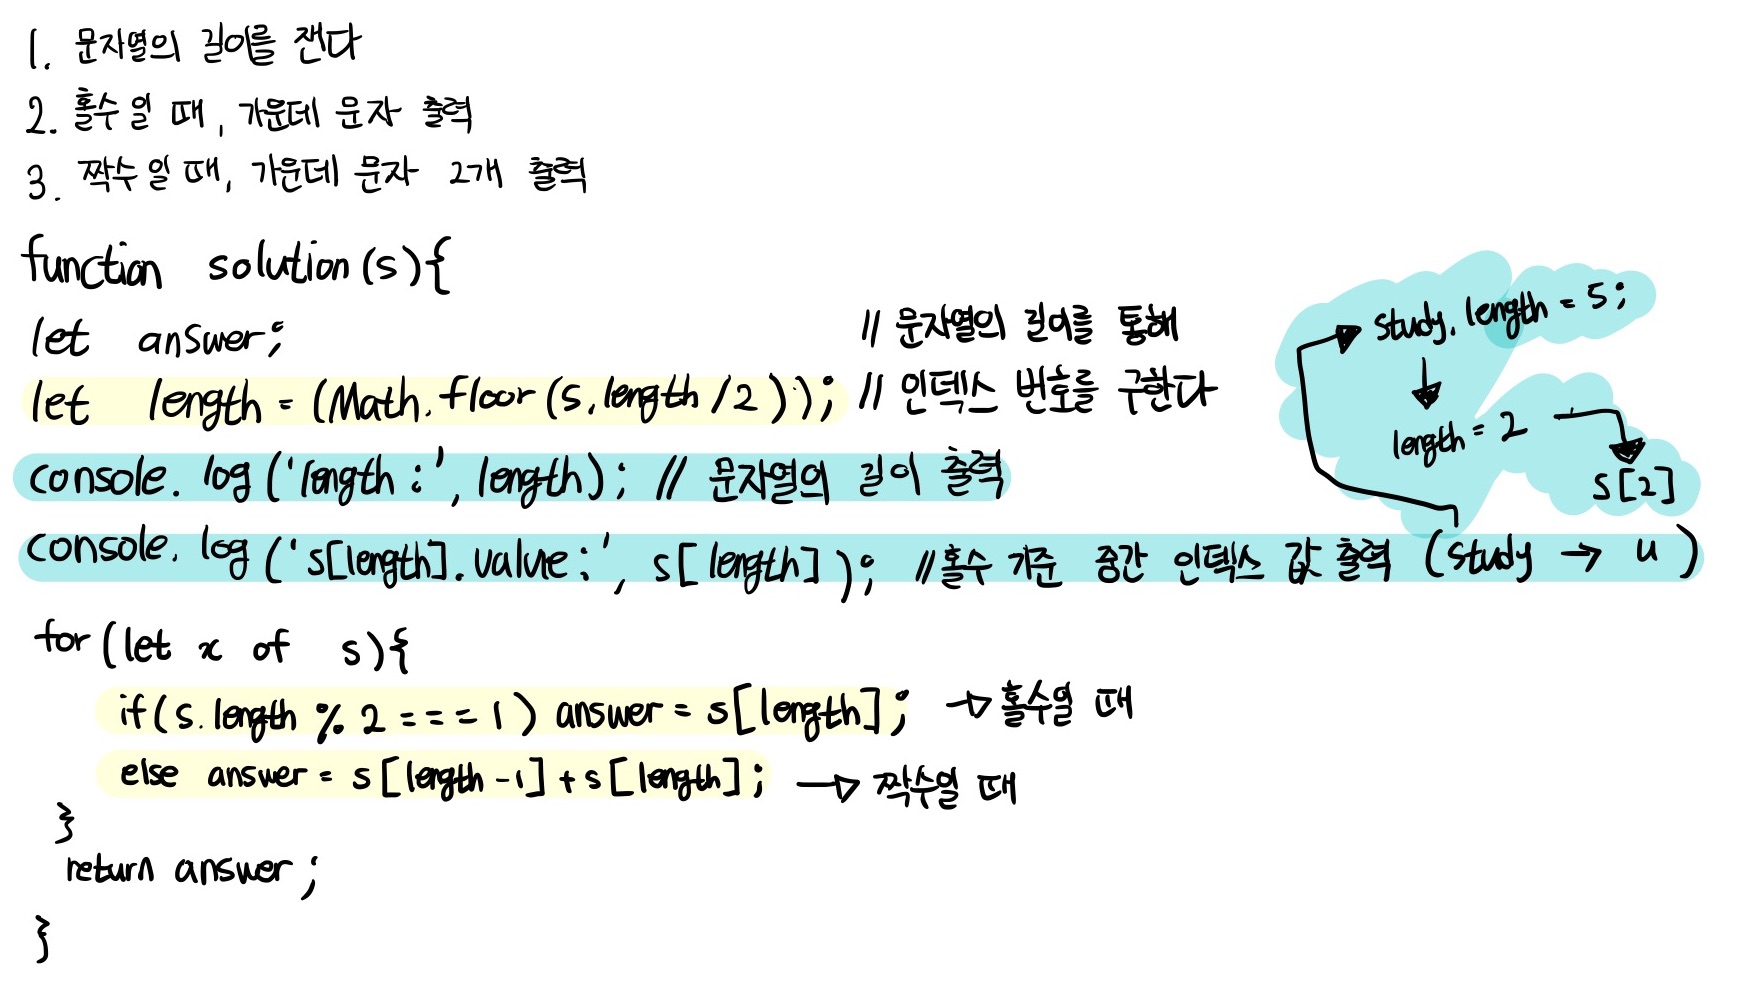 1. 문자열의 길이를 잰다
2. 홀수일 때, 가운데 문자 출력
3. 짝수일 때, 가운데 문자 2개 출력
function solution(s){
let answer;
// 문자열의 길이를 통해
let length = (Math.floor(s.length/2)); // 인덱스 번호를 구한다
console.log('length:', length); // 문자열의 길이 출력
console.log('s[length].value:', s[length]); // 홀수 기준 중간 인덱스 값 출력 (study → u)
study.length = 5;
length = 2
s[2]
for(let x of s){
if(s.length % 2 === 1) answer = s[length]; → 홀수일 때
else answer = s[length-1]+s[length]; → 짝수일 때
}
return answer;
}